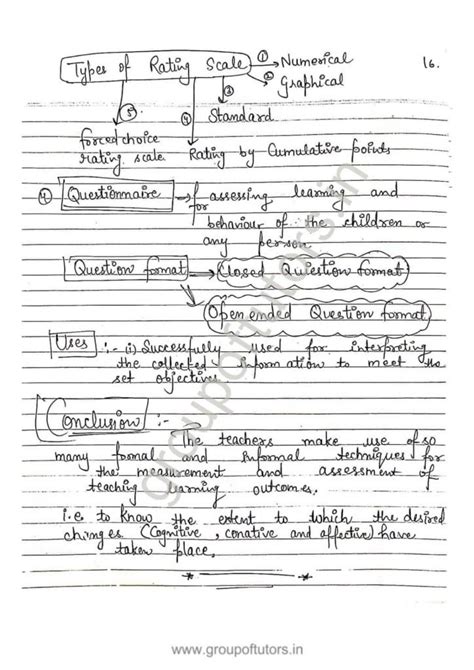 Types of Rating Scale
① Numerical
② Graphical
16.
③ Standard
⑤ forced choice rating scale
④ Rating by Cumulative points
④ Questionnaire → for assessing learning and
behaviour of the children or
any person
Question format → Closed Question format
Open ended Question format
Uses :- (i) Successfully used for interpreting
the collected information to meet the
set objectives.
Conclusion :-
The teachers make use of so
many formal and informal techniques for
the measurement and assessment of
teaching learning outcomes.
i.e. to know the extent to which the desired
changes (Cognitive, conative and affective) have
taken place.
groupoftutors.in
www.groupoftutors.in